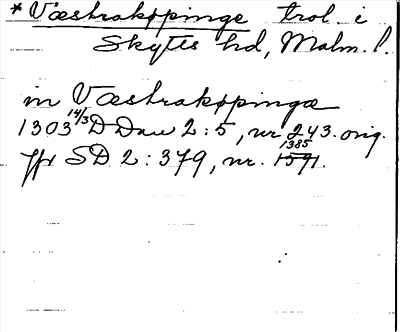 *Væstrakøpinge trol. i
Skytts hd, Malm. l.
in Væstrakøpingæ
1303 14/3 D Dan 2:5, nr 243. orig.
Jfr SD 2:379, nr. 1385 1591.